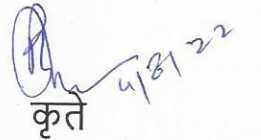 4/8/22
कृते